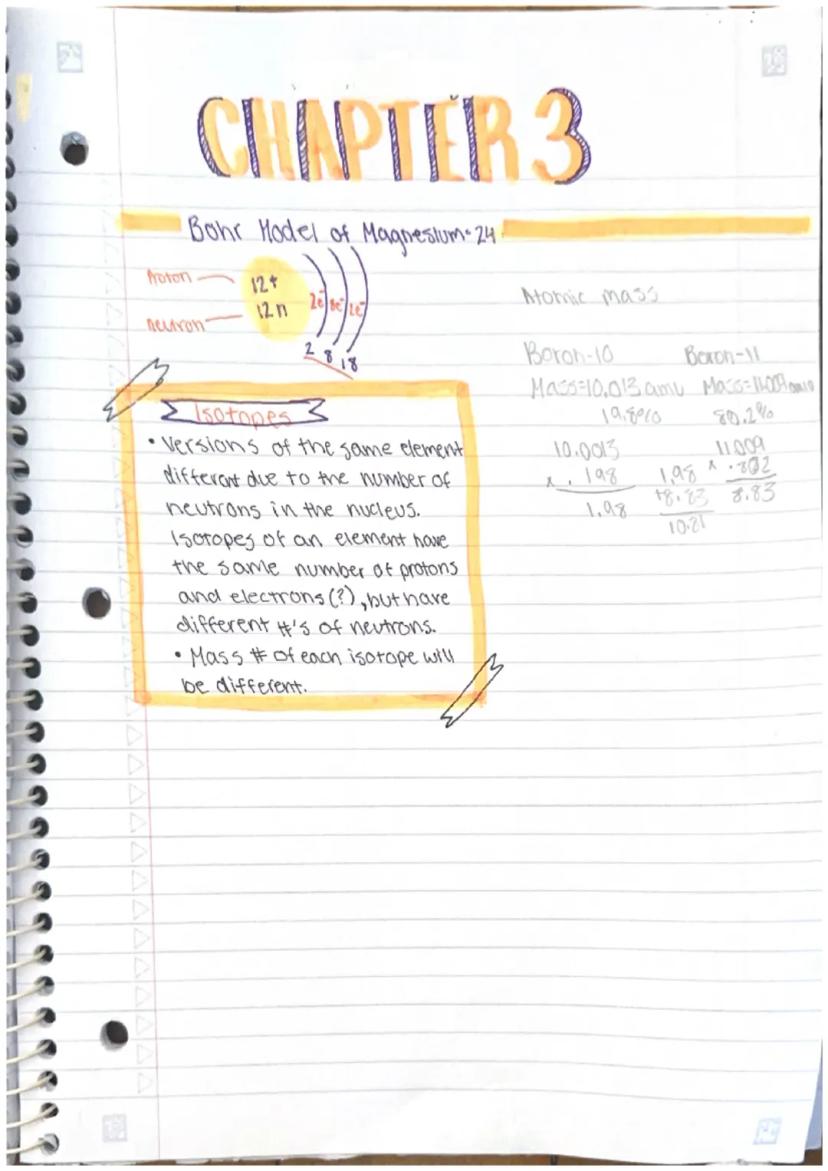 CHAPTER 3
Bohr Model of Magnesium-24
Proton
12+
neutron
12n
2e⁻ 8e⁻ 2e⁻
2 8 18
Isotopes
• Versions of the same element
different due to the number of
neutrons in the nucleus.
Isotopes of an element have
the same number of protons
and electrons (?), but have
different #'s of neutrons.
• Mass # of each isotope will
be different.
Atomic mass
Boron-10 Boron-11
Mass=10.013 amu Mass=11.009 amu
19.8% 80.2%
10.0013 11.009
x .198 1.98 x .802
1.98 +8.83 8.83
10.81